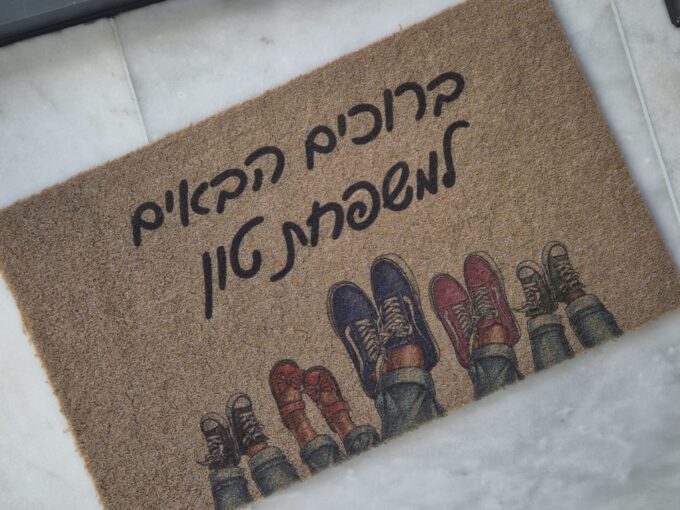 ברוכים הבאים
למשפחת טון